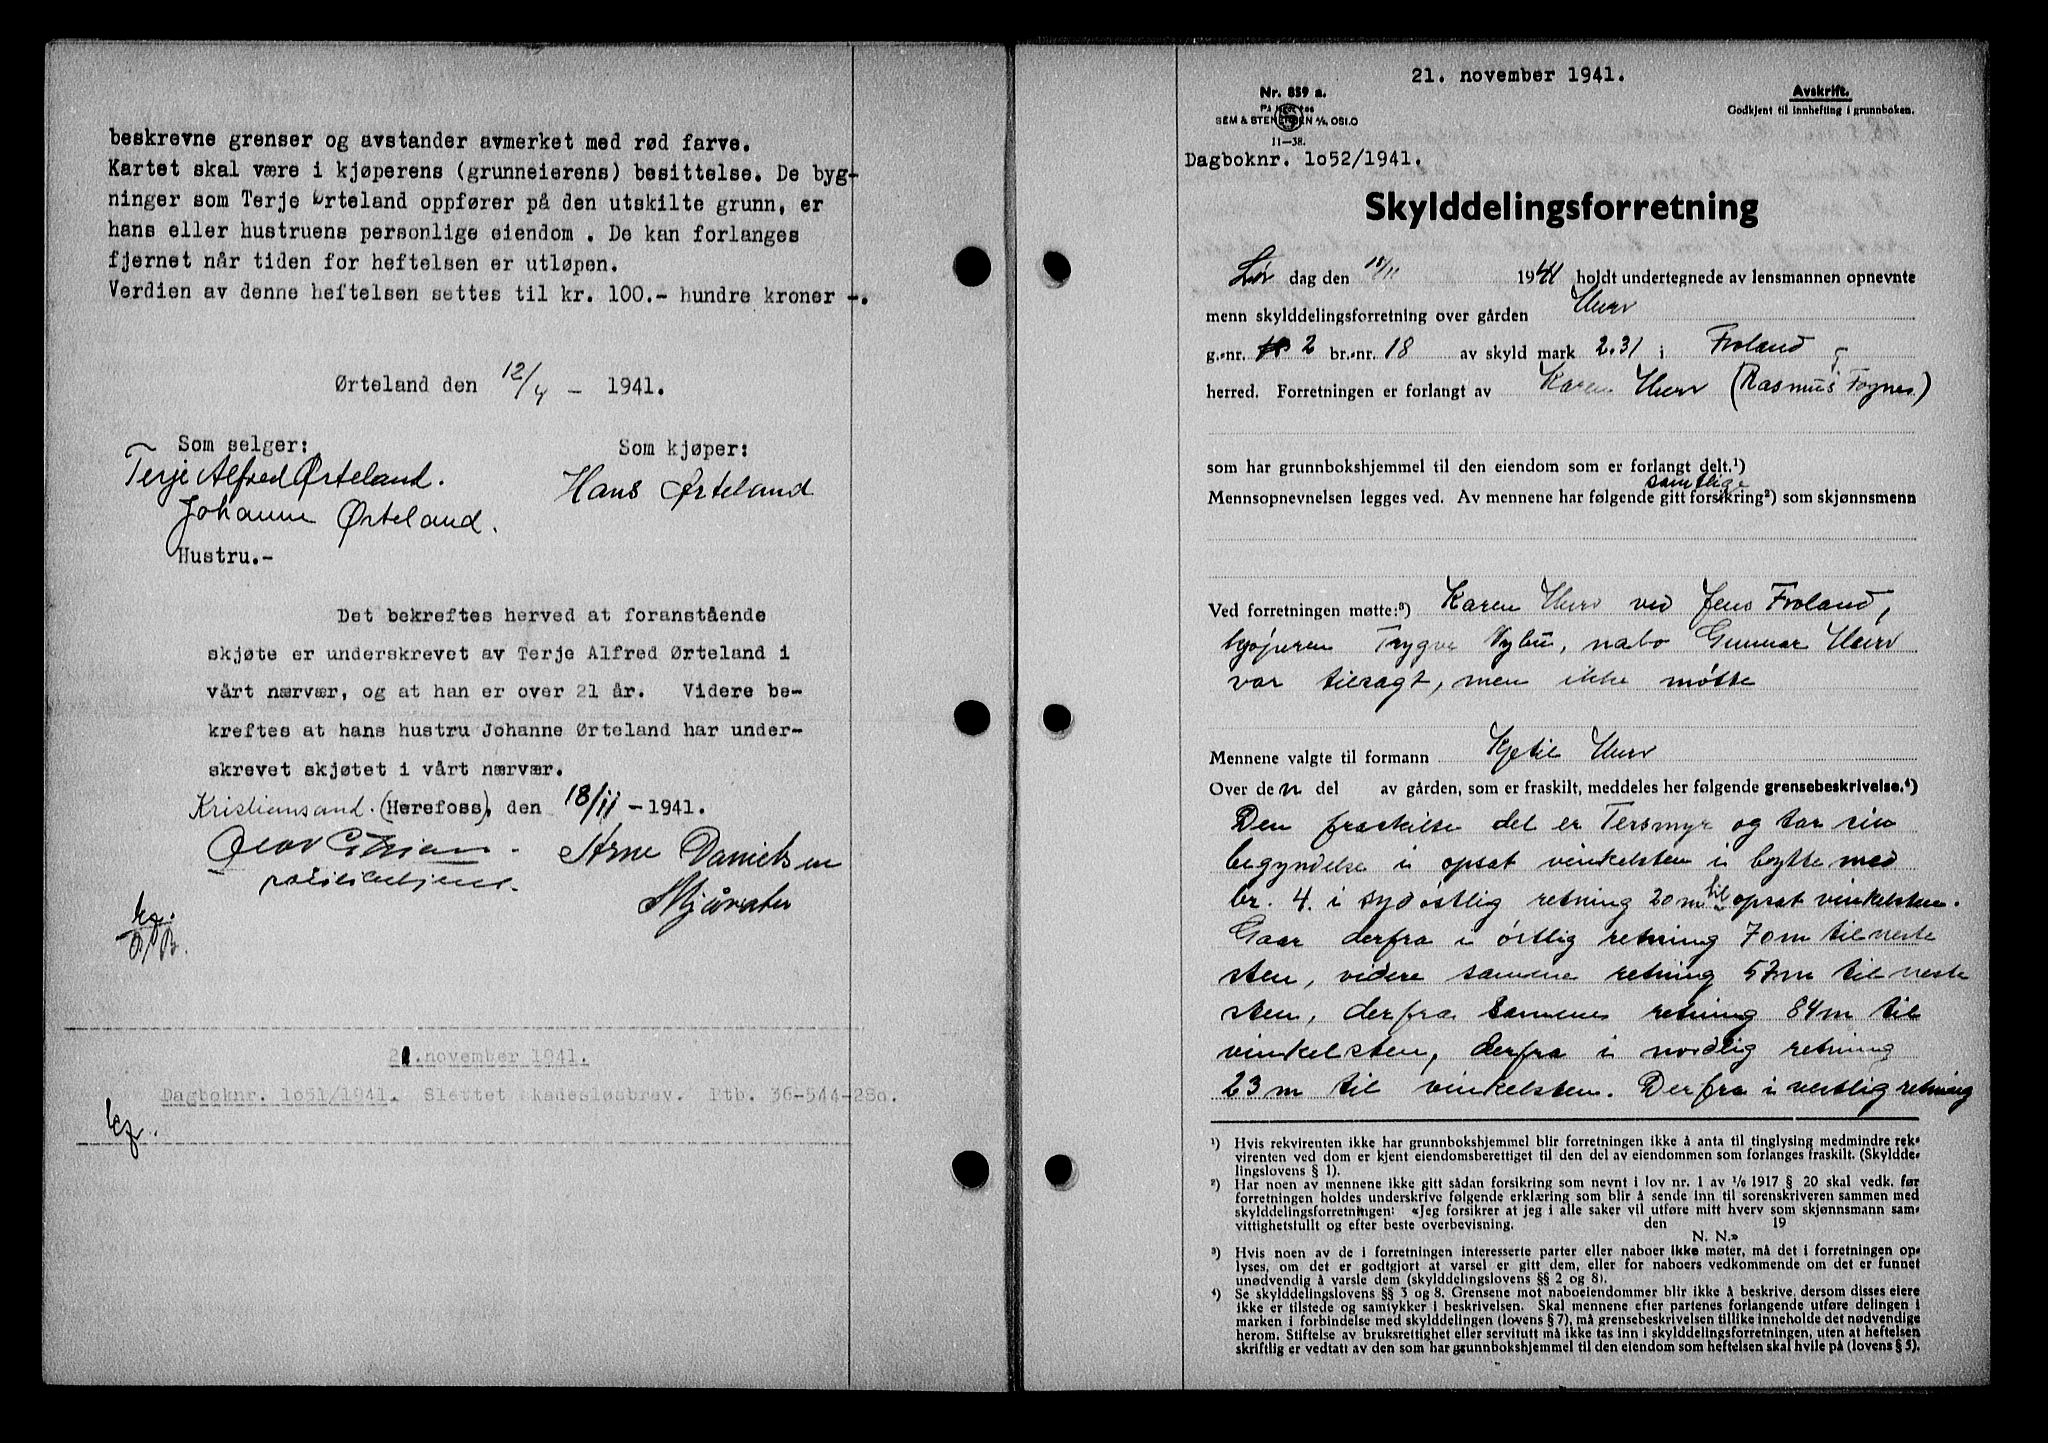 beskrevne grenser og avstander avmerket med rød farve.
Kartet skal være i kjøperens (grunneierens) besittelse. De byg-
ninger som Terje Ørteland oppfører på den utskilte grunn, er
hans eller hustruens personlige eiendom . De kan forlanges
fjernet når tiden for heftelsen er utløpen.
Verdien av denne heftelsen settes til kr. 100.- hundre kroner -.
Ørteland den 12/4 - 1941.
Som selger:
Som kjøper:
Terje Alfred Ørteland.
Hans Ørteland
Johanne Ørteland.
Hustru.-
Det bekreftes herved at foranstående
skjøte er underskrevet av Terje Alfred Ørteland i
vårt nærvær, og at han er over 21 år. Videre be-
kreftes at hans hustru Johanne Ørteland har under-
skrevet skjøtet i vårt nærvær.
Kristiansand. (Herefoss), den 18/11 - 1941.
Arne Danielsen
21.november 1941.
Dagboknr. 1o51/1941. Slettet skadesløsbrev. Ptb. 36-544-28o.
21. november 1941.
Nr. 859 a.
SEM & STENERSEN A/S, OSLO
11-38.
Avskrift.
Godkjent til innhefting i grunnboken.
Dagboknr. 1o52/1941.
Skylddelingsforretning
Lør dag den 1941 holdt undertegnede av lensmannen opnevnte
menn skylddelingsforretning over gården Hurv
g.-nr. 2 br.-nr. 18 av skyld mark 2.31 i Froland
herred. Forretningen er forlangt av Karen Hurv (Rasmus Fognes)
som har grunnbokshjemmel til den eiendom som er forlangt delt.¹)
samtlige
Mennsopnevnelsen legges ved. Av mennene har følgende gitt forsikring²) som skjønnsmenn
Ved forretningen møtte:³) Karen Hurv ved Jens Froland,
kjøperen Trygve Nybu, nabo Gunnar Hurv
var tilsagt, men ikke møtte
Mennene valgte til formann Kjetil Hurv
Over den del av gården, som er fraskilt, meddeles her følgende grensebeskrivelse.⁴)
Den fraskilte del er Tersmyr og tar sin
begyndelse i opsat vinkelsten i bytte med
br. 4. i sydøstlig retning 20 m til opsat vinkelsten.
Gaar derfra i østlig retning 70 m til neste
sten, videre samme retning 57 m til neste
sten, derfra samme retning 84 m til
vinkelsten, derfra i nordlig retning
23 m til vinkelsten. Derfra i vestlig retning
¹) Hvis rekvirenten ikke har grunnbokshjemmel blir forretningen ikke å anta til tinglysing medmindre rek-
virenten ved dom er kjent eiendomsberettiget til den del av eiendommen som forlanges fraskilt. (Skyldde-
lingslovens § 1).
²) Har noen av mennene ikke gitt sådan forsikring som nevnt i lov nr. 1 av ¹/₆ 1917 § 20 skal vedk. før
forretningen holdes underskrive følgende erklæring som blir å sende inn til sorenskriveren sammen med
skylddelingsforretningen: «Jeg forsikrer at jeg i alle saker vil utføre mitt hverv som skjønnsmann sam-
vittighetsfullt og efter beste overbevisning. den 19
N. N.»
³) Hvis noen av de i forretningen interesserte parter eller naboer ikke møter, må det i forretningen op-
lyses, om det er godtgjort at varsel er gitt dem, eller for naboers vedkommende om det er funnet
unødvendig å varsle dem (skylddelingslovens §§ 2 og 8).
⁴) Se skylddelingslovens §§ 3 og 8. Grensene mot naboeiendommer blir ikke å beskrive, dersom disses eiere
ikke er tilstede og samtykker i beskrivelsen. Skal mennene efter partenes forlangende utføre delingen i
marken i forbindelse med skylddelingen (lovens § 7), må grensebeskrivelsen tillike inneholde det nødvendige
herom. Stiftelse av bruksrettighet eller servitutt må ikke tas inn i skylddelingsforretningen, uten at heftelsen
skriftlig er vedtatt av den som har grunnbokshjemmel til den eiendom som heftelsen skal hvile på (lovens § 5).